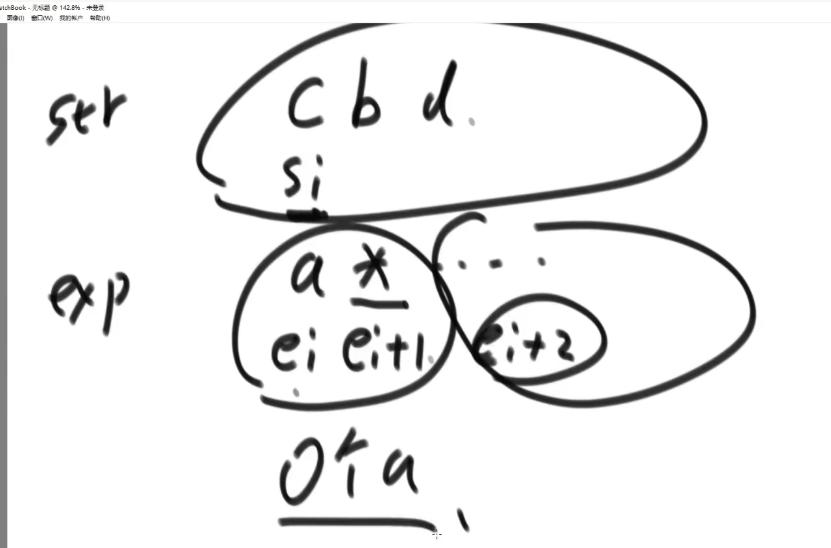 atchBook - 无标题 @ 142.8% - 未登录
图像(I) 窗口(W) 我的帐户 帮助(H)
str c b d.
si
exp a * . - .
ei ei+1 ei+2
0个a